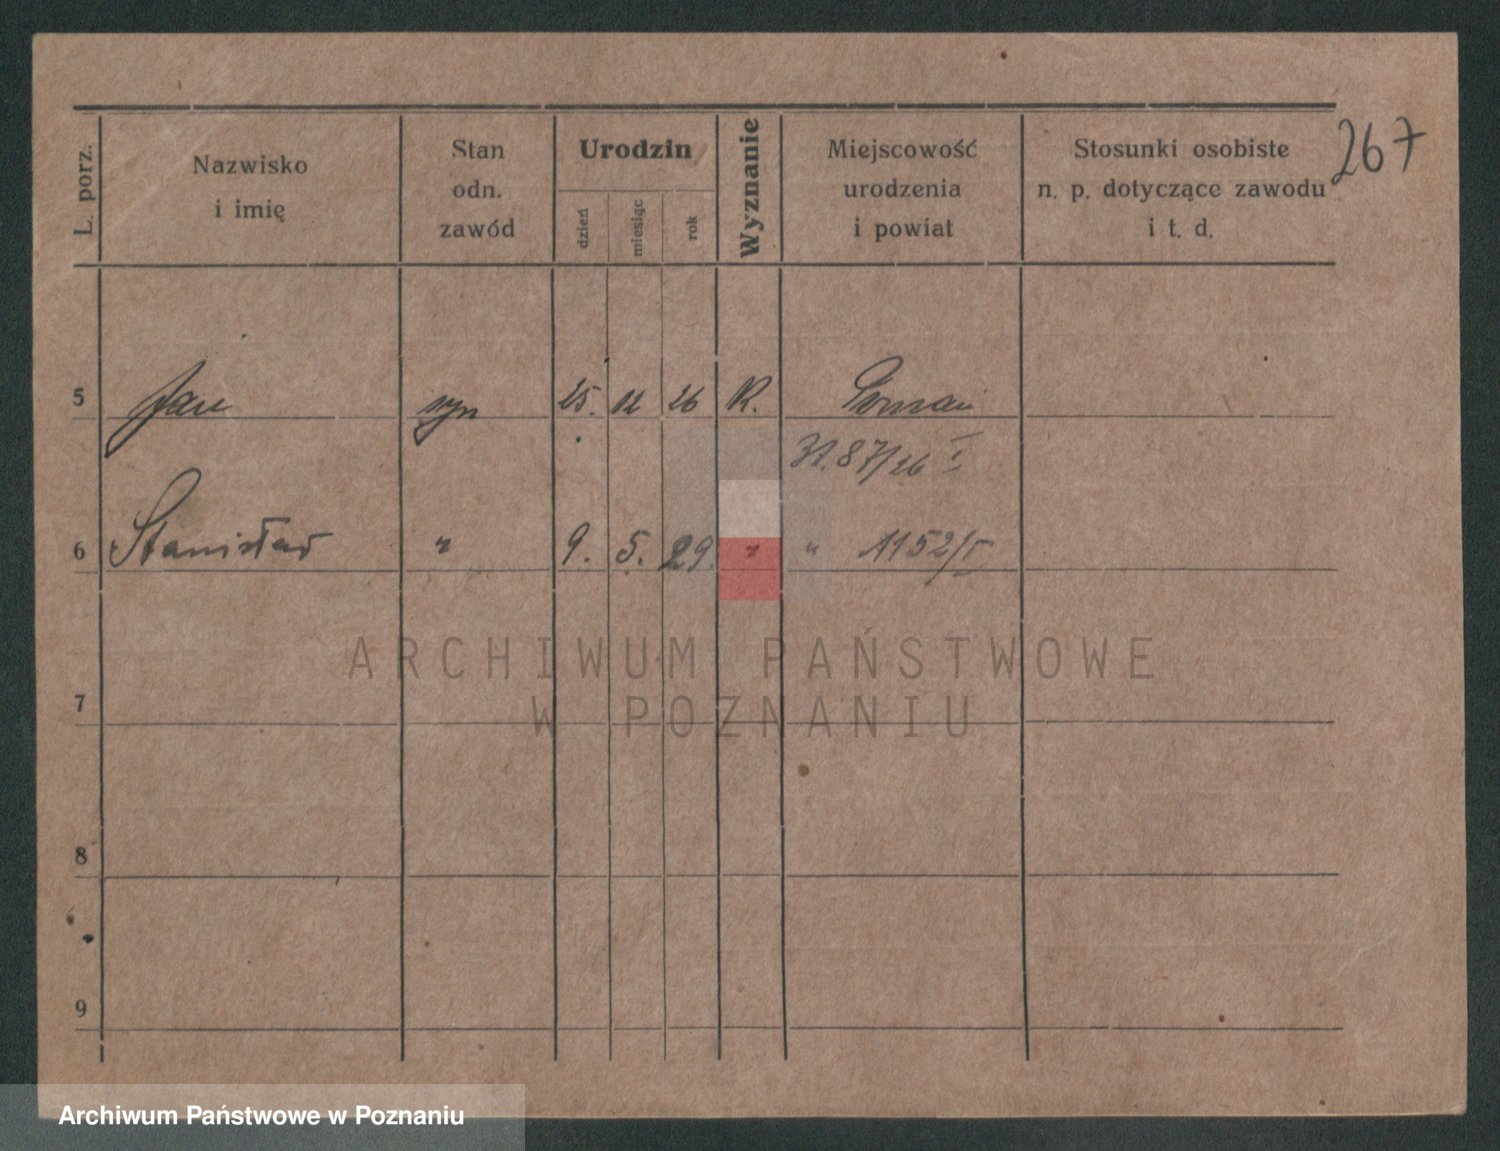 L. porz.
Nazwisko
i imię
Stan
odn.
zawód
Urodzin
dzień
miesiąc
rok
Wyznanie
Miejscowość
urodzenia
i powiat
Stosunki osobiste
n. p. dotyczące zawodu
i t. d.
267
5 Jan syn 25. 12 26 R.
87/26 I
6 Stanisław " 9. 5. 29. " " 1152/I
7
8
9
ARCHIWUM PAŃSTWOWE
W POZNANIU
Archiwum Państwowe w Poznaniu